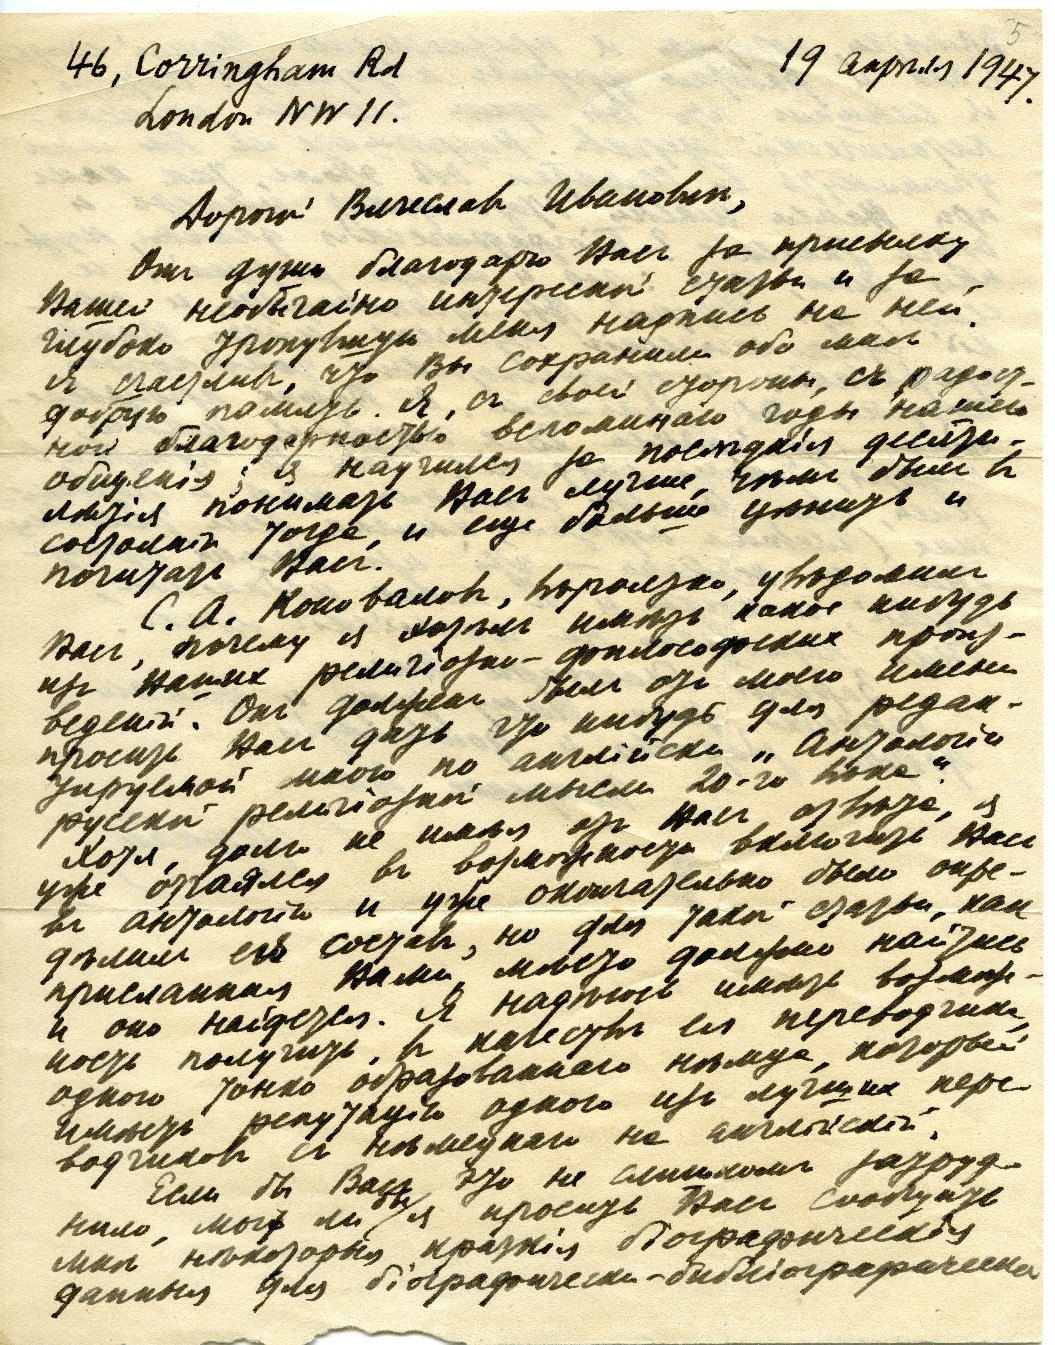 5
46, Corringham Rd
London NW 11.
19 апрѣля 1947.
Дорогой Вячеславъ Ивановичъ,
Отъ души благодарю Васъ за присылку
Вашей необычайно интересной статьи и за
глубоко тронувшую меня надпись на ней.
Я счастливъ, что Вы сохранили обо мнѣ
добрую память. Я, съ своей стороны, съ радост-
ной благодарностью вспоминаю годы нашего
общенія; я научился за послѣднія десяти-
лѣтія понимать Васъ лучше, чѣмъ былъ въ
состояніи тогда, и еще больше цѣнить и
почитать Васъ.
С. А. Коноваловъ, вѣроятно, увѣдомилъ
Васъ, почему я хотѣлъ имѣть какое нибудь
изъ Вашихъ религіозно-философскихъ произ-
веденій. Онъ долженъ былъ отъ моего имени
просить Васъ дать что нибудь для редак-
тируемой мною по англійски „Антологіи
русской религіозной мысли 20-го вѣка“.
Хотя, долго не имѣя отъ Васъ отвѣта, я
уже отчаялся въ возможности включить Васъ
въ антологію и уже окончательно было опре-
дѣлилъ ея составъ, но для такой статьи, какъ
присланная Вами, мѣсто должно найтись
и оно найдется. Я надѣюсь имѣть возмож-
ность получить, въ качествѣ ея переводчика,
одного тонко образованнаго нѣмца, который
имѣетъ репутацію одного изъ лучшихъ пере-
водчиковъ съ нѣмецкаго на англійскій.
Если бы Васъ это не слишкомъ затруд-
нило, могъ ли бы я просить Васъ сообщить
мнѣ нѣкоторыя краткія біографическія
данныя для біографически-библіографическа